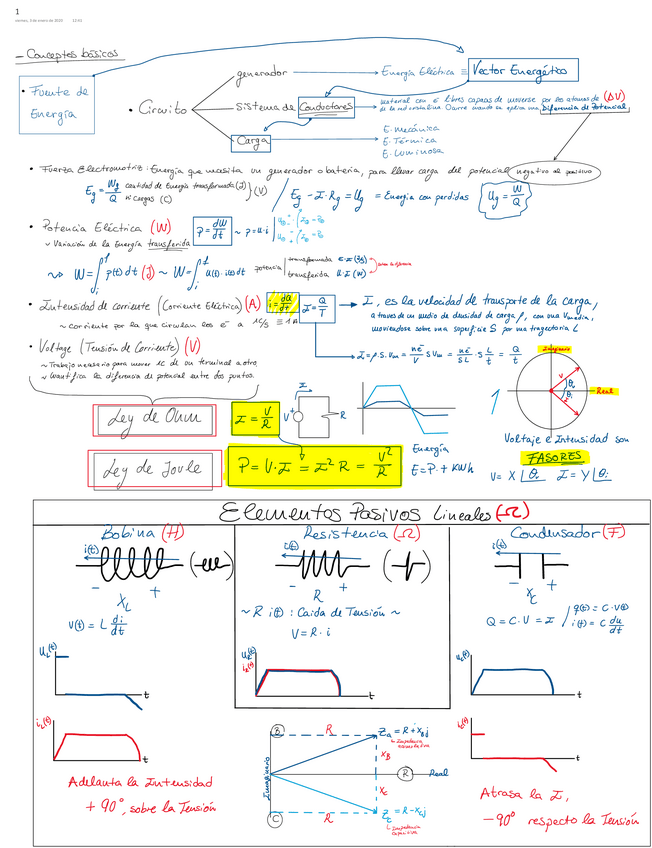 1
viernes, 3 de enero de 2020 12:51
- Conceptos básicos
• Fuente de Energía
• Circuito
generador
Energía Eléctrica ≡ Vector Energético
Sistema de Conductores
Material con e⁻ libres capaces de moverse por los átomos de
Diferencia de Potencial (ΔV)
Carga
E. mecánica
E. Térmica
E. Luminosa
• Fuerza Electromotriz: Energía que necesita un generador o batería, para llevar carga del potencial negativo al positivo
Eg = Wg/Q cantidad de Energía transformada (J) / nº cargas (C) } (V)
Eg - I·Rg = Ug = Energía con perdidas
Ug = W/Q
• Potencia Eléctrica (W)
~ Variación de la Energía transferida
P = dW/dt ~ p = u·i
W = ∫ p(t) dt (J) ~ W = ∫ u(t)·i(t) dt
potencia
transformada
transferida U·I (W)
• Intensidad de corriente (Corriente Eléctrica) (A)
i = dQ/dt
I = Q/T
~ corriente por la que circulan los e⁻ a 1C/s ≡ 1A
I, es la velocidad de transporte de la carga,
a través de un medio de densidad de carga ρ, con una Vmedia,
moviendose sobre una superficie S por una trayectoria L
• Voltage (Tensión de Corriente) (V)
~ Trabajo necesario para mover 1C de un terminal a otro
~ Cuantifica la diferencia de potencial entre dos puntos.
I = ρ·S·Vm = ne⁻/V S Vm = ne⁻/SL · S · L/t = Q/t
Imaginario
Real
Ley de Ohm
I = V/R
I
V
R
Voltaje e Intensidad son
FASORES
Ley de Joule
P = V·I = I² R = V²/R
Energía
E = P·t KWh
V = X | θ I = Y | θi
Elementos Pasivos Lineales (Ω)
Bobina (H)
i(t)
- +
XL
V(t) = L di/dt
UL(t)
t
iL(t)
t
Adelanta la Intensidad
+ 90°, sobre la Tensión
Resistencia (Ω)
i(t)
- +
R
~ R i(t) : Caida de Tensión ~
V = R · i
UR(t)
iR(t)
t
Condensador (F)
i(t)
- +
Xc
Q = C · V = I
q(t) = C·V(t)
i(t) = C du/dt
Uc(t)
t
t
Atrasa la I,
- 90° respecto la Tensión
B
R
XB
Imaginario
R
Real
Xc
C
R
Impedancia
Impedancia capacitiva